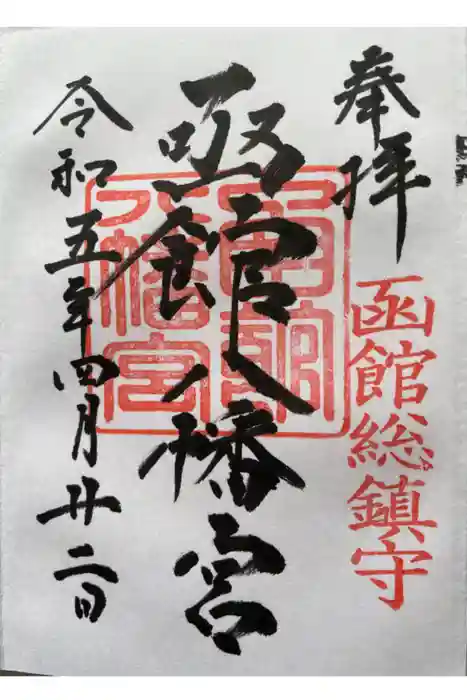 奉拝
函館総鎮守
函館八幡宮
函館
八幡宮
令和五年四月廿二日